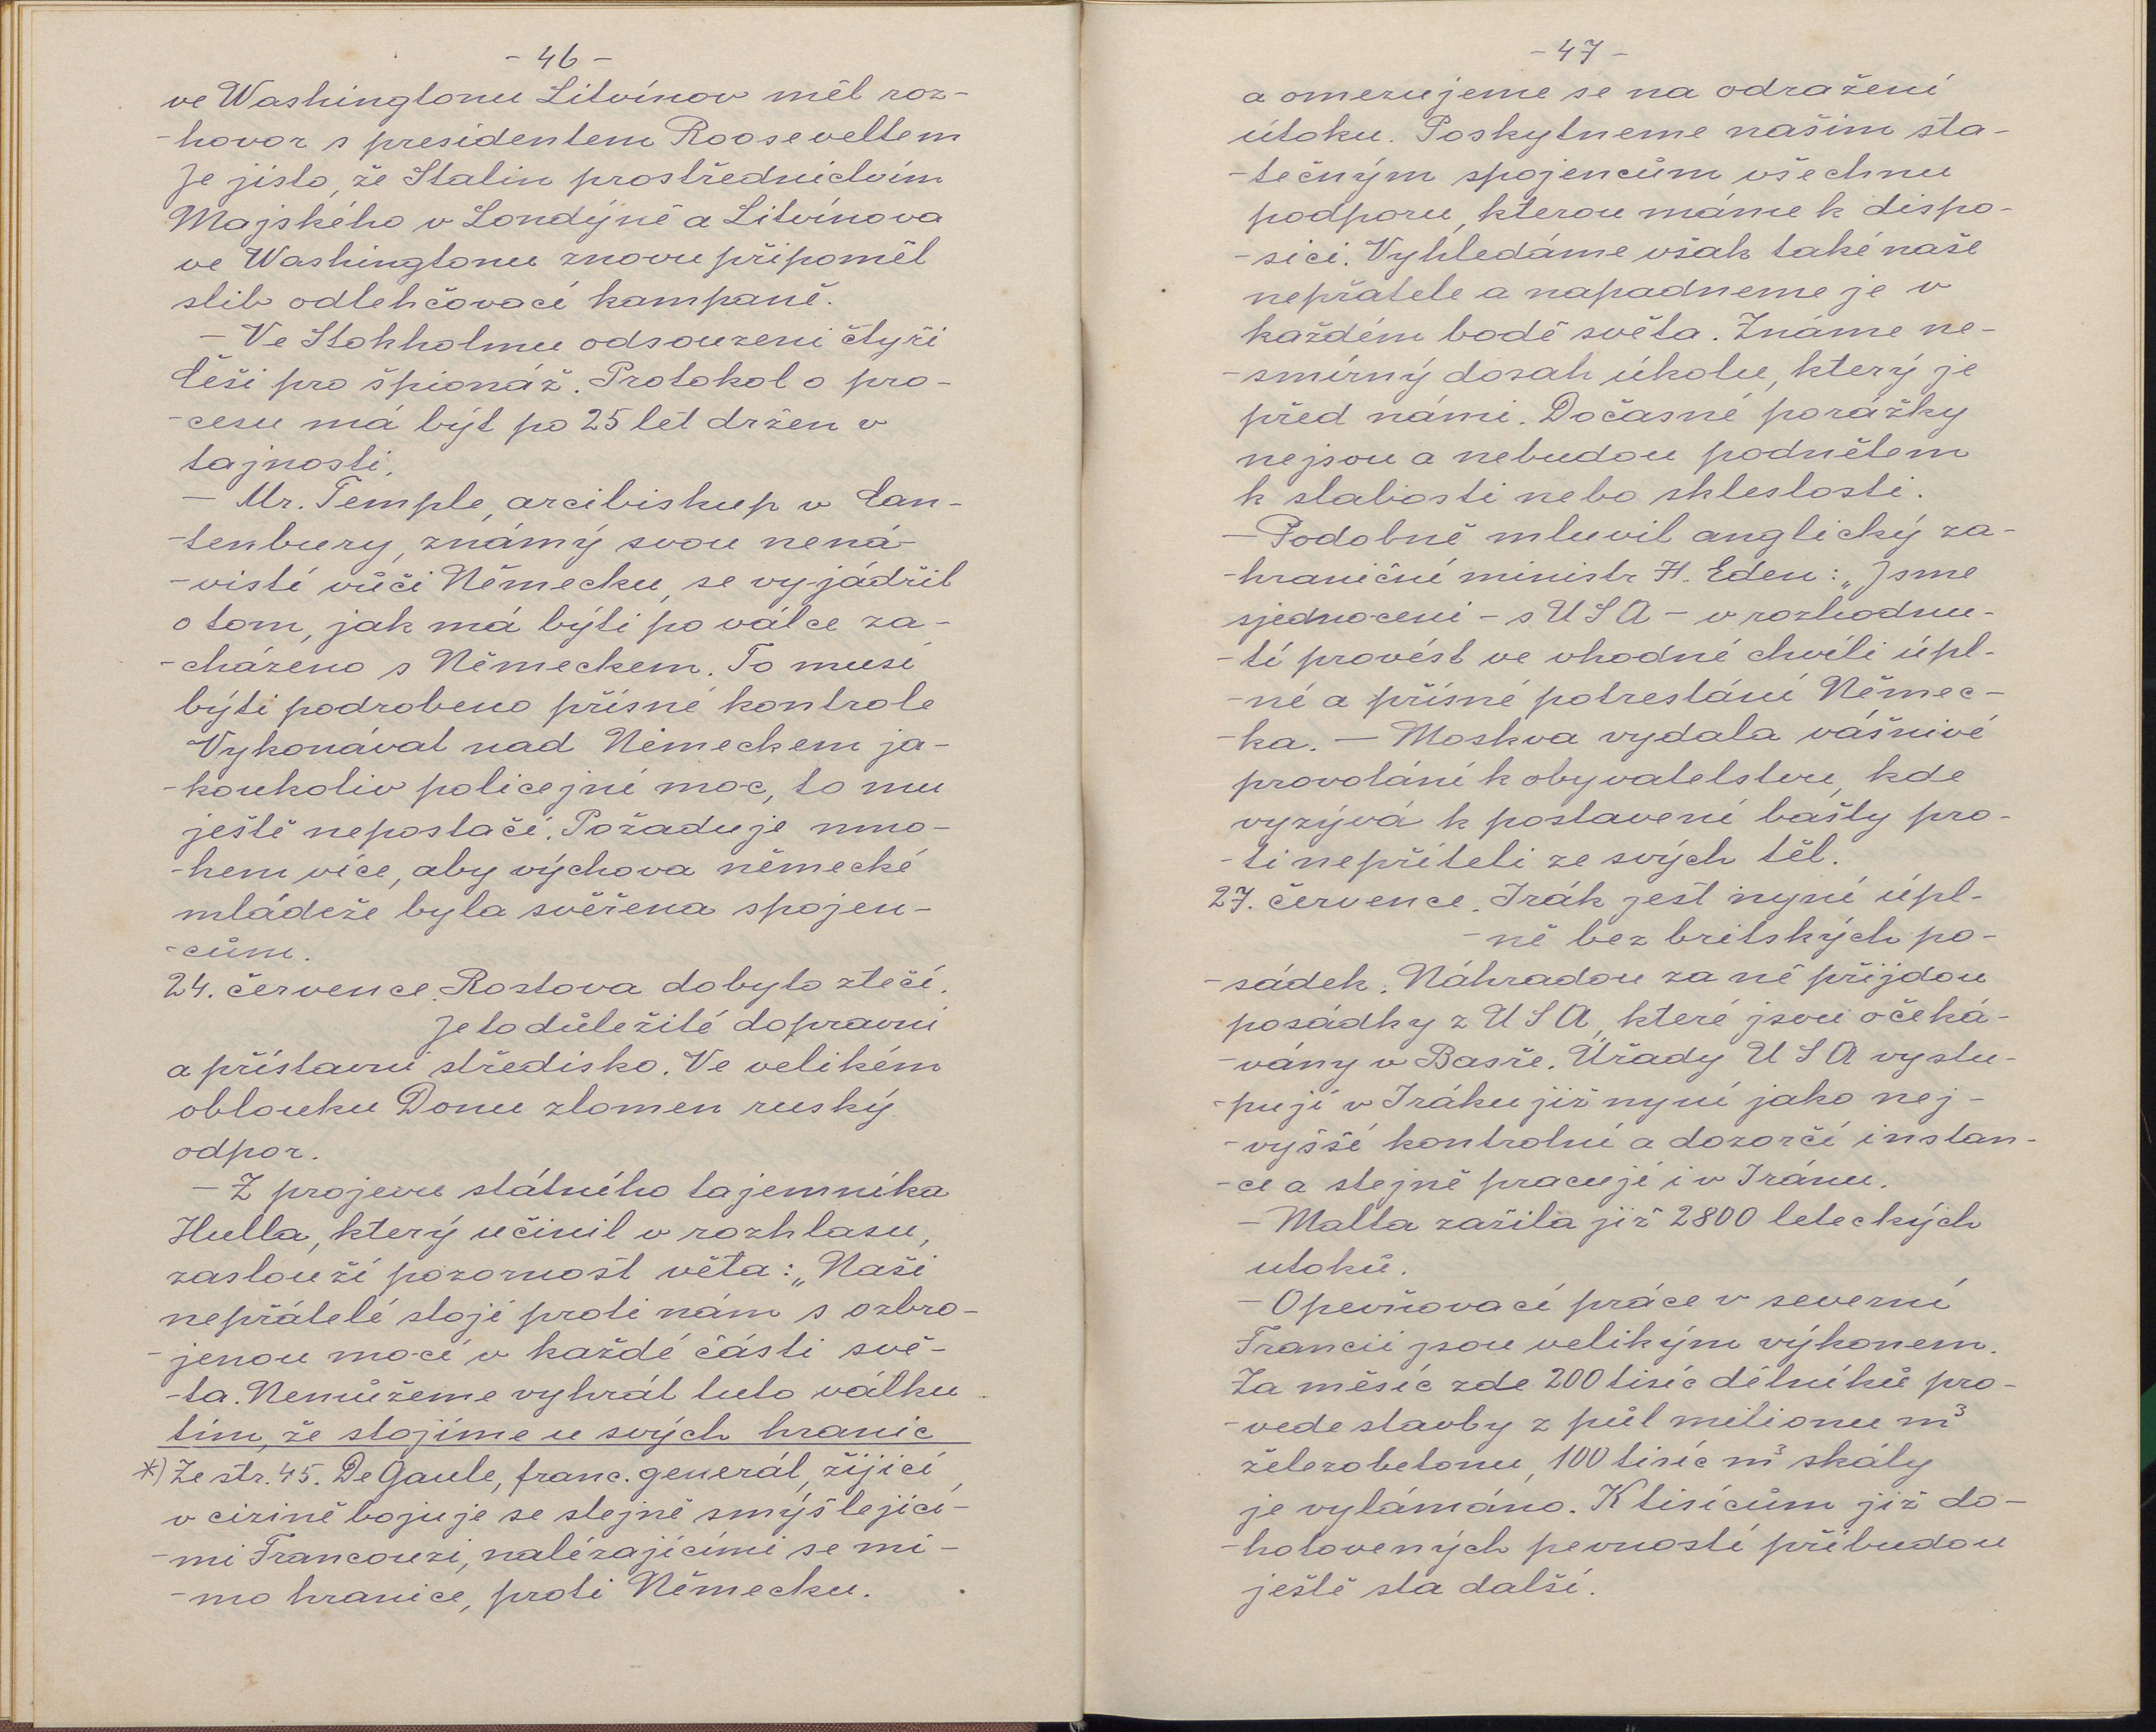 - 46 -
ve Washingtonu Litvínov měl roz-
-hovor s presidentem Rooseveltem
Je jisto, že Stalin prostřednictvím
Majského v Londýně a Litvínova
ve Washingtonu znovu připoměl
slib odlehčovací kampaně.
- Ve Stokholmu odsouzeni čtyři
Češi pro špionáž. Protokol o pro-
-cesu má být po 25 let držen v
tajnosti.
- Mr. Temple, arcibiskup v Can-
-tenbury, známý svou nená-
-vistí vůči Německu, se vyjádřil
o tom, jak má býti po válce za-
-cházeno s Německem. To musí
býti podrobeno přísné kontrole
Vykonával nad Německem ja-
-koukoliv policejní moc, to mu
ještě nepostačí. Požaduje mno-
-hem více, aby výchova německé
mládeže byla svěřena spojen-
-cům.
24. července. Rostova dobyto ztečí.
Je to důležité dopravní
a přístavní středisko. Ve velikém
oblouku Donu zlomen ruský
odpor.
- Z projevu státního tajemníka
Hulla, který učinil v rozhlasu,
zaslouží pozornost věta: „Naši
nepřátelé stojí proti nám s ozbro-
-jenou mocí v každé části svě-
-ta. Nemůžeme vyhrát tuto válku
tím, že stojíme u svých hranic
*) Ze str. 45. De Gaule, franc. generál, žijící
v cizině bojuje se stejně smýšlející-
-mi Francouzi, nalézajícími se mi-
-mo hranice, proti Německu.
- 47 -
a omezujeme se na odražení
útoku. Poskytneme našim sta-
-tečným spojencům všechnu
podporu, kterou máme k dispo-
-sici. Vyhledáme však také naše
nepřatele a napadneme je v
každém bodě světa. Známe ne-
-smírný dosah úkolu, který je
před námi. Dočasné porážky
nejsou a nebudou podnětem
k slabosti nebo skleslosti.
- Podobně mluvil anglický za-
-hraniční ministr H. Eden: „Jsme
sjednoceni - s USA - v rozhodnu-
-tí provést ve vhodné chvíli úpl-
-né a přísné potrestání Němec-
-ka. - Moskva vydala vášnivé
provolání k obyvatelstvu, kde
vyzývá k postavení bašty pro-
-ti nepříteli ze svých těl.
27. července. Irák jest nyní úpl-
-ně bez britských po-
-sádek. Náhradou za ně přijdou
posádky z USA, které jsou očeká-
-vány v Basře. Úřady USA vystu-
-pují v Iráku již nyní jako nej-
-vyšší kontrolní a dozorčí instan-
-ce a stejně pracují i v Iránu.
- Malta zažila již 2800 leteckých
utoků.
- Opevňovací práce v severní
Francii jsou velikým výkonem.
Za měsíc zde 200 tisíc dělníků pro-
-vede stavby z půl milionu m³
železobetonu, 100 tisíc m³ skály
je vylámáno. K tisícům již do-
-hotovených pevností přibudou
ještě sta další.